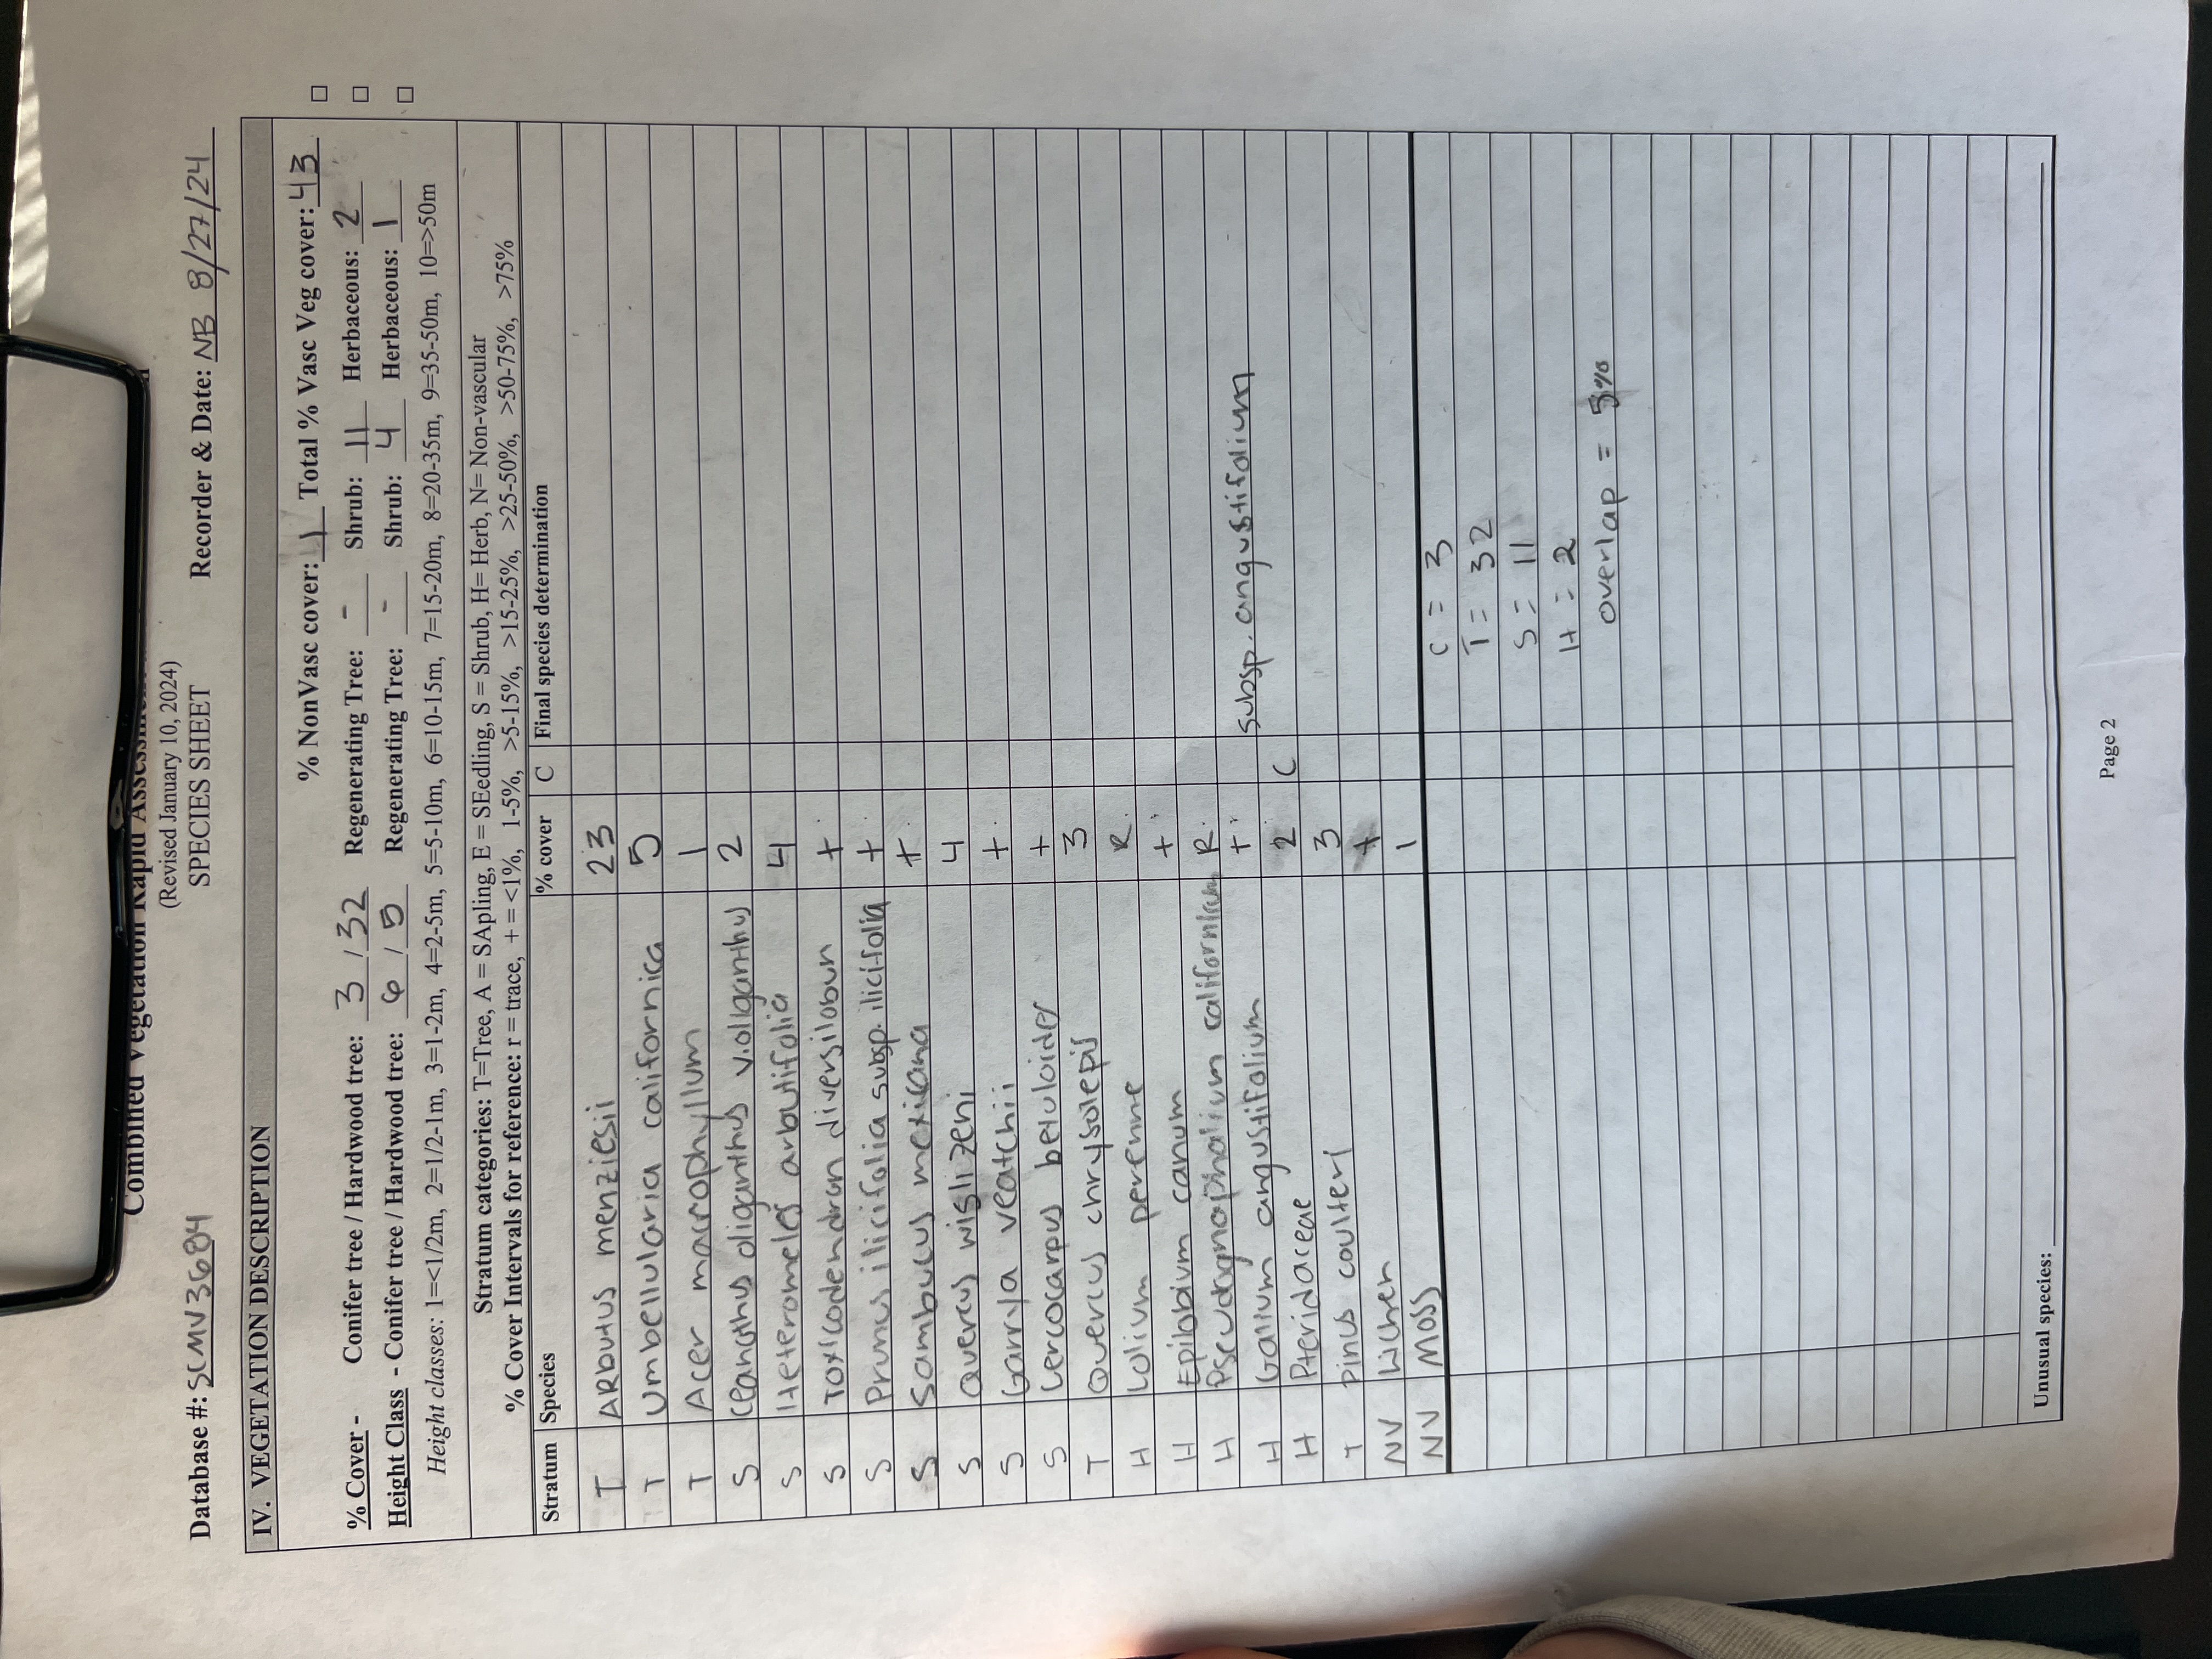 Combined Vegetation Rapid Assessment
(Revised January 10, 2024)
SPECIES SHEET
Database #: SCMV3684 Recorder & Date: NB 8/27/24
IV. VEGETATION DESCRIPTION
% NonVasc cover: 1 Total % Vasc Veg cover: 43
% Cover - Conifer tree / Hardwood tree: 3 / 32 Regenerating Tree: - Shrub: 11 Herbaceous: 2
Height Class - Conifer tree / Hardwood tree: 6 / 5 Regenerating Tree: - Shrub: 4 Herbaceous: 1
Height classes: 1=<1/2m, 2=1/2-1m, 3=1-2m, 4=2-5m, 5=5-10m, 6=10-15m, 7=15-20m, 8=20-35m, 9=35-50m, 10=>50m
Stratum categories: T=Tree, A = SApling, E = SEedling, S = Shrub, H= Herb, N= Non-vascular
% Cover Intervals for reference: r = trace, + = <1%, 1-5%, >5-15%, >15-25%, >25-50%, >50-75%, >75%
Stratum Species % cover C Final species determination
T Arbutus menziesii 23
T Umbellularia californica 5
T Acer macrophyllum 1
S Ceanothus oliganthus v.oliganthus 2
S Heteromeles arbutifolia 4
S Toxicodendron diversilobun +
S Prunus ilicifolia subsp. ilicifolia +
S Sambucus mexicana +
S Quercus wislizeni 4
S Garrya veatchii +
S Cercocarpus betuloides +
T Quercus chrysolepis 3
H Lolium perenne R
H Epilobium canum +
H Pseudognaphalium californicum R
H Galium angustifolium + subsp. angustifolium
H Pteridaceae 2 C
T Pinus coulteri 3
NV Lichen +
NV Moss 1
C = 3
T = 32
S = 11
H = 2
overlap = 5%
Unusual species:
Page 2